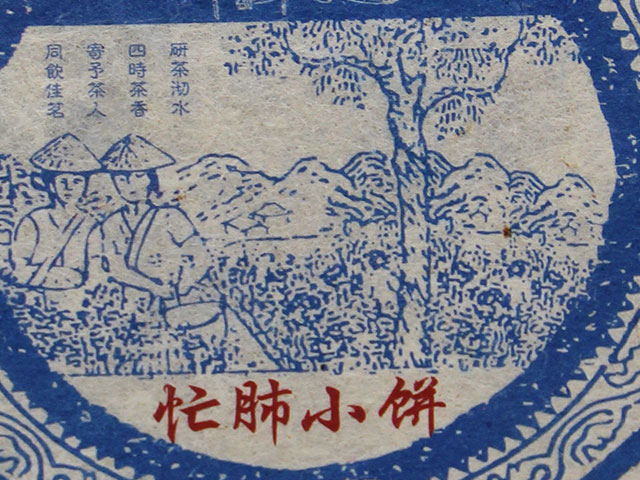 研茶沏水
四時茶香
寄予茶人
同飲佳茗
忙肺小饼